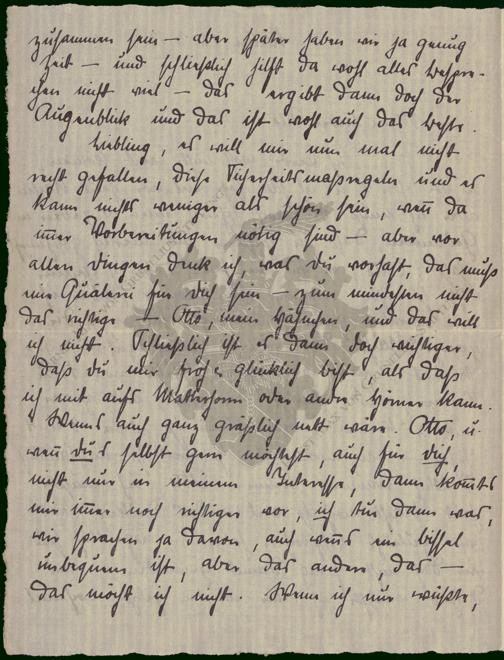 zusammen sein — aber später haben wir ja genug
Zeit — und schließlich hilft da wohl alles bespre-
chen nicht viel — das ergibt dann doch der
Augenblick und das ist wohl auch das beste.
Liebling, es will mir nun mal nicht
recht gefallen, diese Sicherheitsmaßregeln und es
kann nichts weniger als schön sein, wenn da
immer Vorbereitungen nötig sind — aber vor
allen Dingen denk ich, was du vorhast, das muß
eine Quälerei für dich sein — zum mindesten nicht
das richtige — Otto, mein Häschen, und das will
ich nicht. Schließlich ist es dann doch wichtiger,
daß du mir froh u. glücklich bist, als daß
ich mit aufs Matterhorn oder andre Hörner kann.
Wenns auch ganz gräßlich nett wäre. Otto, u.
wenn du's selbst gern möchtest, auch für dich,
nicht nur in meinem Interesse, dann kommts
mir immer noch richtiger vor, ich tu dann was,
wir sprachen ja davon, auch wenns ein bissel
unbequem ist, aber das andre, das —
das möcht ich nicht. Wenn ich nur wüßte,